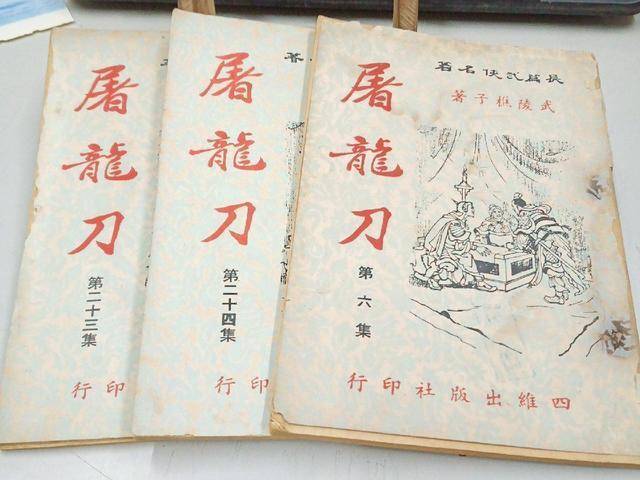 屠龍刀
第二十三集
印行
屠龍刀
第二十四集
印行
長篇武俠名著
武陵樵子著
屠龍刀
第六集
四維出版社印行